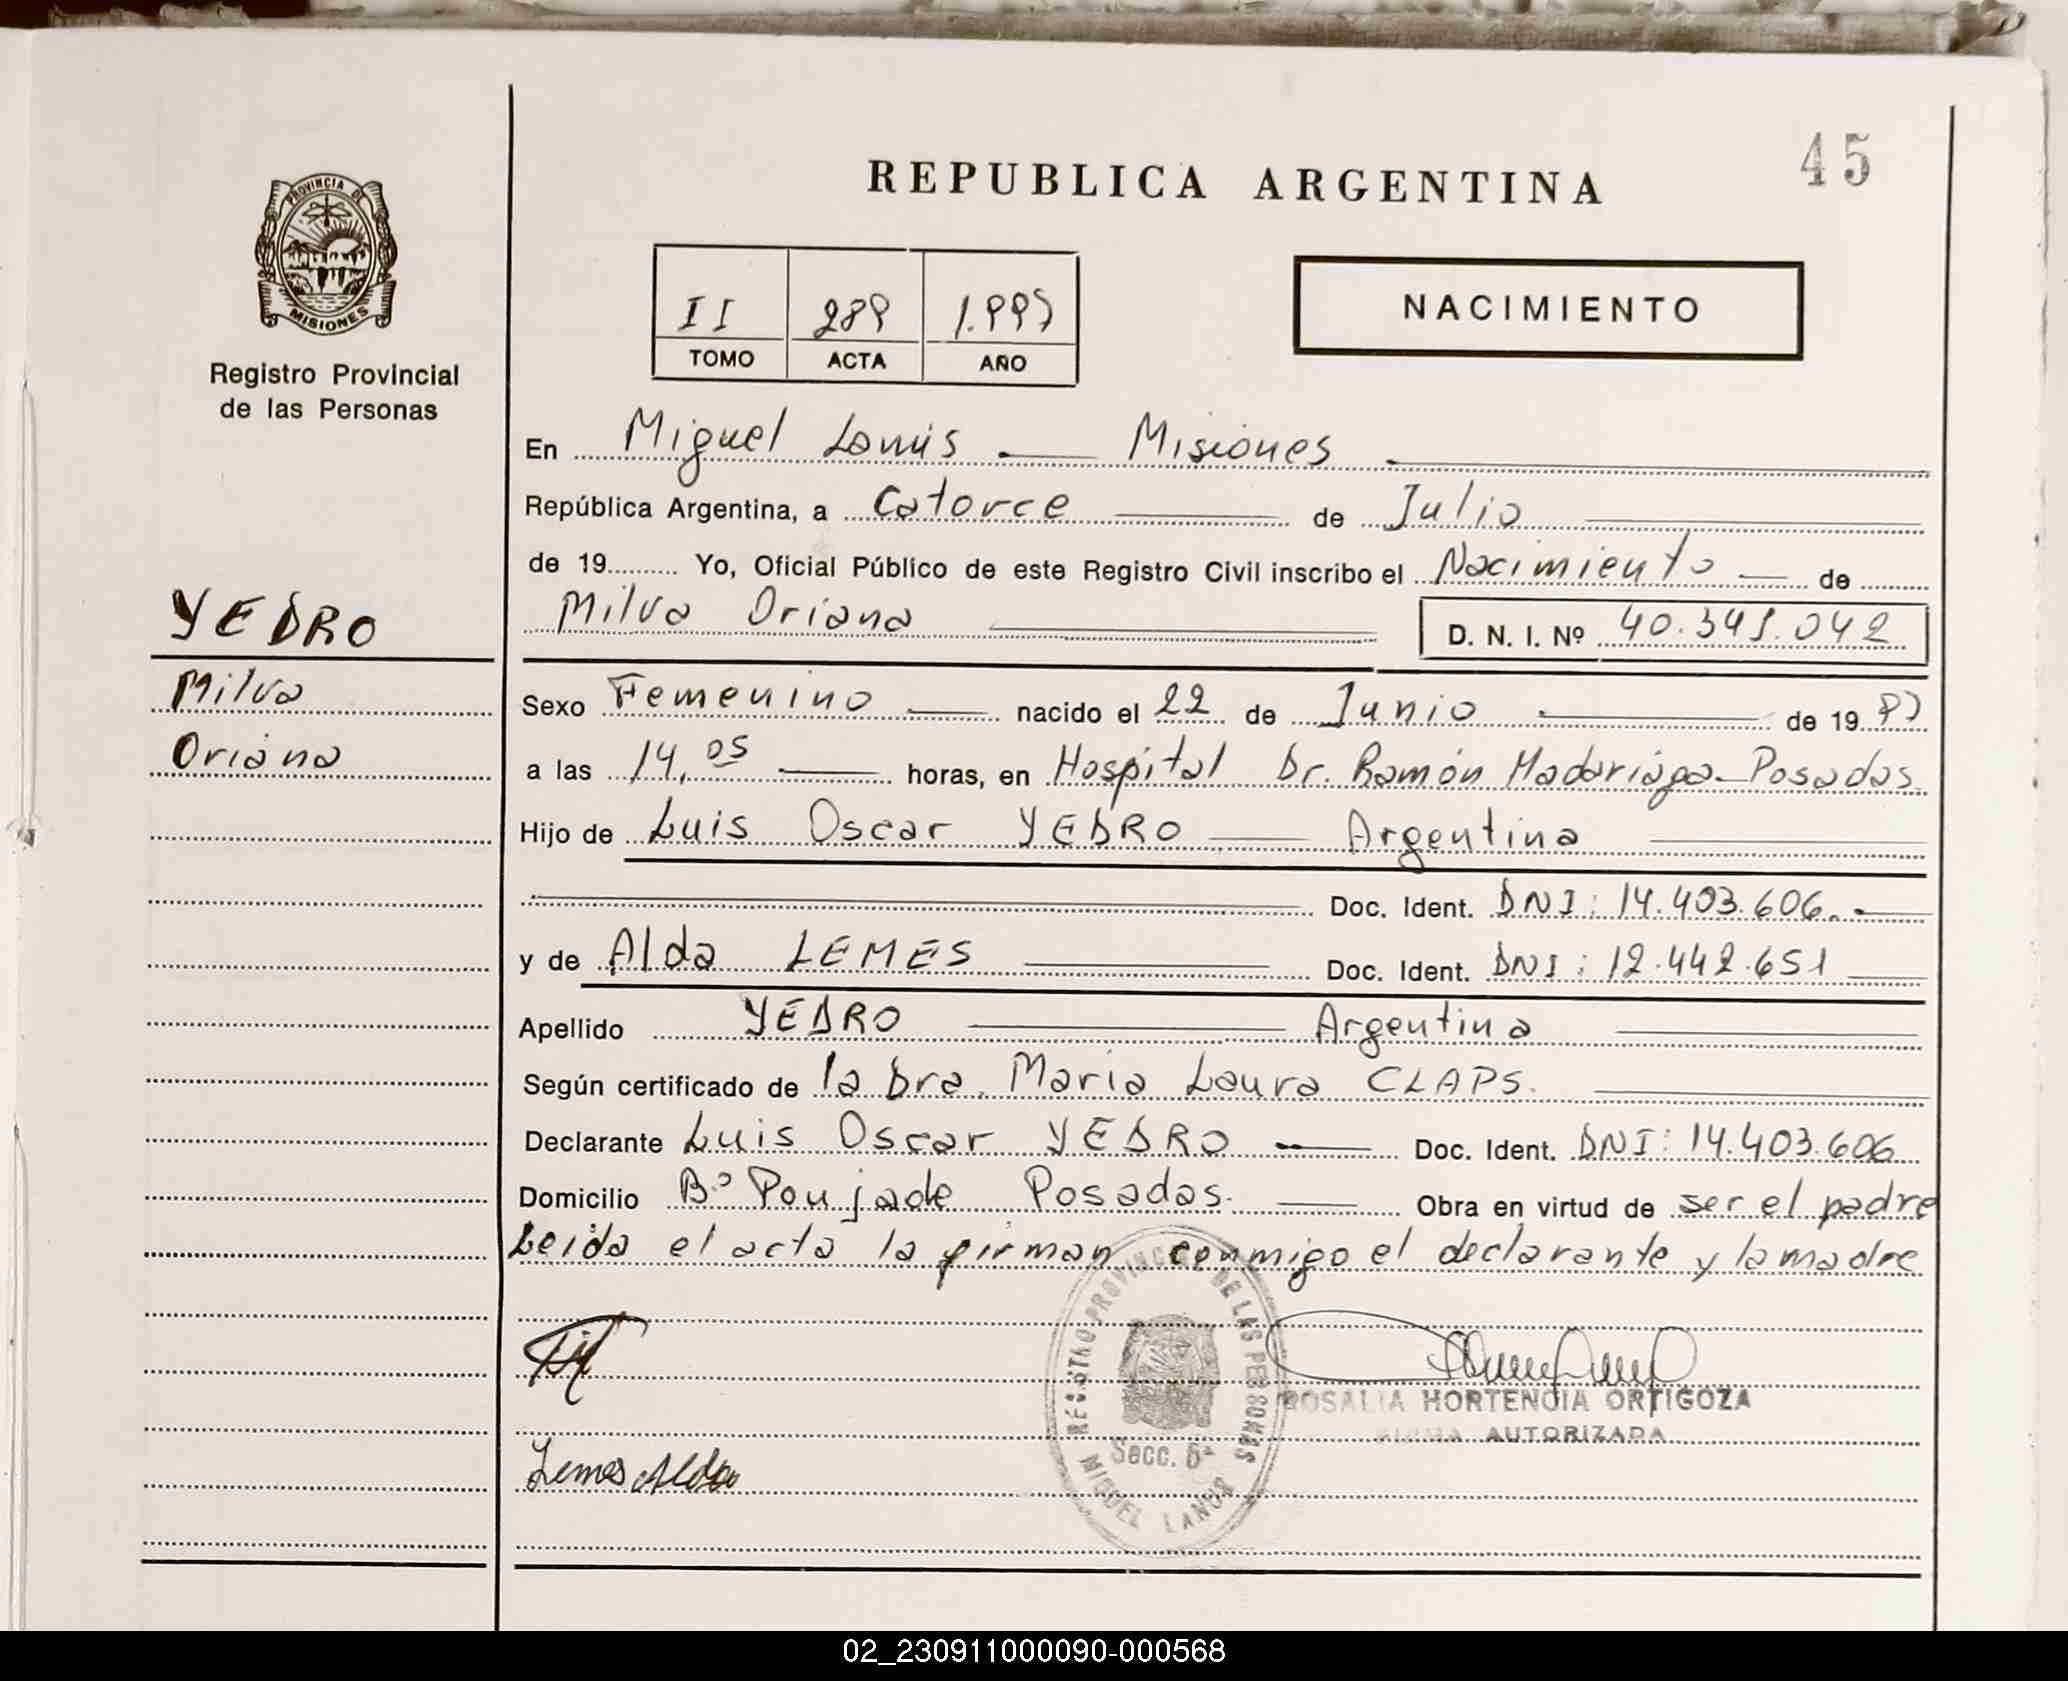 45
REPUBLICA ARGENTINA
PROVINCIA DE
MISIONES
Registro Provincial
de las Personas
II 289 1.997
TOMO ACTA AÑO
NACIMIENTO
En Miguel Lanús — Misiones
República Argentina, a Catorce de Julio
de 19 Yo, Oficial Público de este Registro Civil inscribo el Nacimiento de
Milva Oriana D. N. I. Nº 40.341.042
YEDRO
Milva
Oriana
Sexo Femenino nacido el 22 de Junio de 19 97
a las 14,05 horas, en Hospital Dr. Ramón Madariaga - Posadas
Hijo de Luis Oscar YEDRO — Argentina
Doc. Ident. DNI: 14.403.606.
y de Alda LEMES Doc. Ident. DNI: 12.442.651
Apellido YEDRO Argentina
Según certificado de la Dra. Maria Laura CLAPS.
Declarante Luis Oscar YEDRO Doc. Ident. DNI: 14.403.606
Domicilio Bº Poujade Posadas. Obra en virtud de ser el padre
Leida el acta la firman conmigo el declarante y la madre
REGISTRO PROVINCIAL DE LAS PERSONAS
Secc. 6ª
MIGUEL LANUS
ROSALIA HORTENCIA ORTIGOZA
FIRMA AUTORIZADA
Lemes Alda
02_230911000090-000568